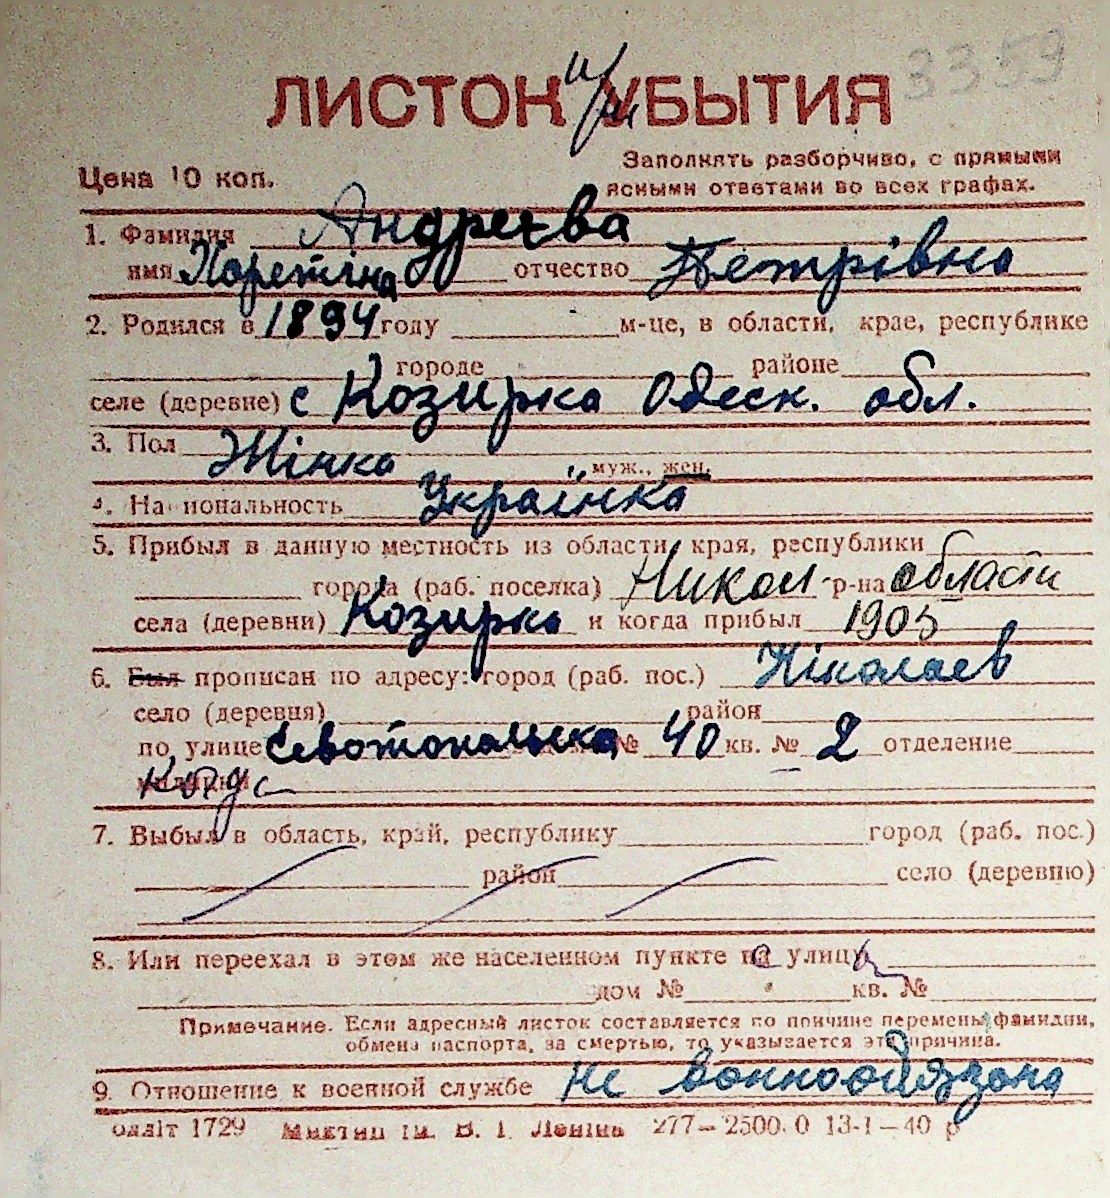 3359
ЛИСТОК УБЫТИЯ
Цена 10 коп.
Заполнять разборчиво, с прямыми
ясными ответами во всех графах.
1. Фамилия Андреева
имя Харетіна отчество Петрівна
2. Родился в 1894 году м-це, в области, крае, республике
городе районе
селе (деревне) с Козирка Одеск. обл.
3. Пол Жінка муж., жен.
4. Национальность Українка
5. Прибыл в данную местность из области, края, республики
города (раб. поселка) Никол р-на области
села (деревни) Козирка и когда прибыл 1905
6. Был прописан по адресу: город (раб. пос.) Ніколаев
село (деревня) район
по улице Севотопальска № 40 кв. № 2 отделение
милиции Когда
7. Выбыл в область, край, республику город (раб. пос.)
район село (деревню)
8. Или переехал в этом же населенном пункте на улицу
дом № кв. №
Примечание. Если адресный листок составляется по причине перемены фамилии,
обмена паспорта, за смертью, то указывается эта причина.
9. Отношение к военной службе не воннообязана
одліт 1729 ім. В. І. Леніна 277—2500.0 13-I—40 р